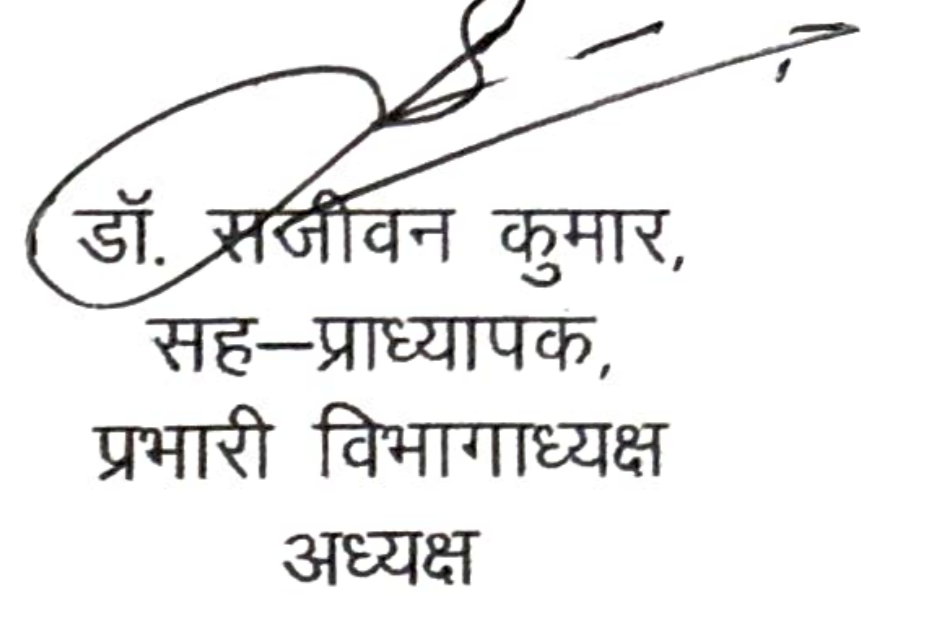 डॉ. सजीवन कुमार,
सह–प्राध्यापक,
प्रभारी विभागाध्यक्ष
अध्यक्ष